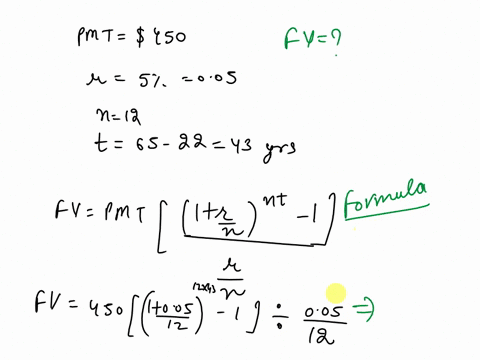 PMT = $ 450 FV = ?
r = 5% = 0.05
n = 12
t = 65 - 22 = 43 yrs
FV = PMT [ (1 + r/n)^nt - 1 ] / r/n Formula
FV = 450 [ (1 + 0.05/12)^12x43 - 1 ] ÷ 0.05/12 ⇒